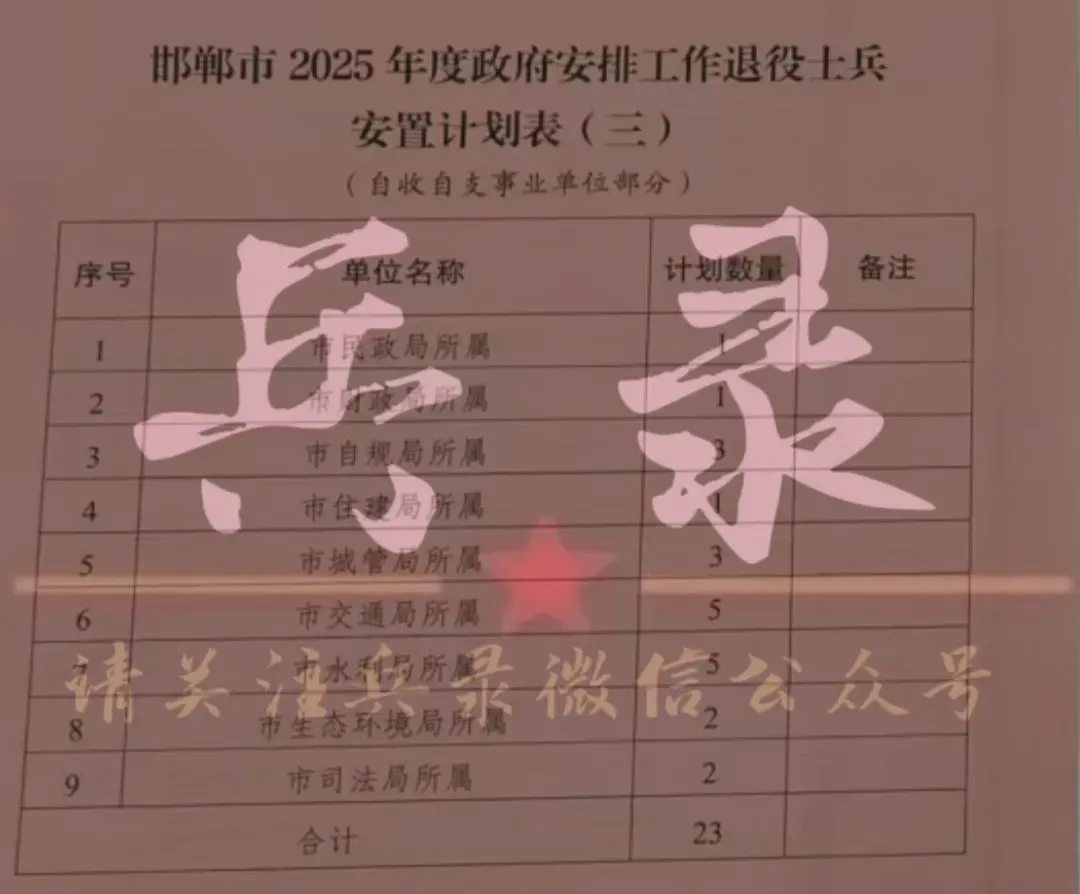 邯郸市 2025 年度政府安排工作退役士兵
安置计划表（三）
（自收自支事业单位部分）
序号 单位名称 计划数量 备注
1 市民政局所属 1
2 市财政局所属 1
3 市自规局所属 3
4 市住建局所属 1
5 市城管局所属 3
6 市交通局所属 5
7 市水利局所属 5
8 市生态环境局所属 2
9 市司法局所属 2
合计 23
兵 录
请关注兵录微信公众号